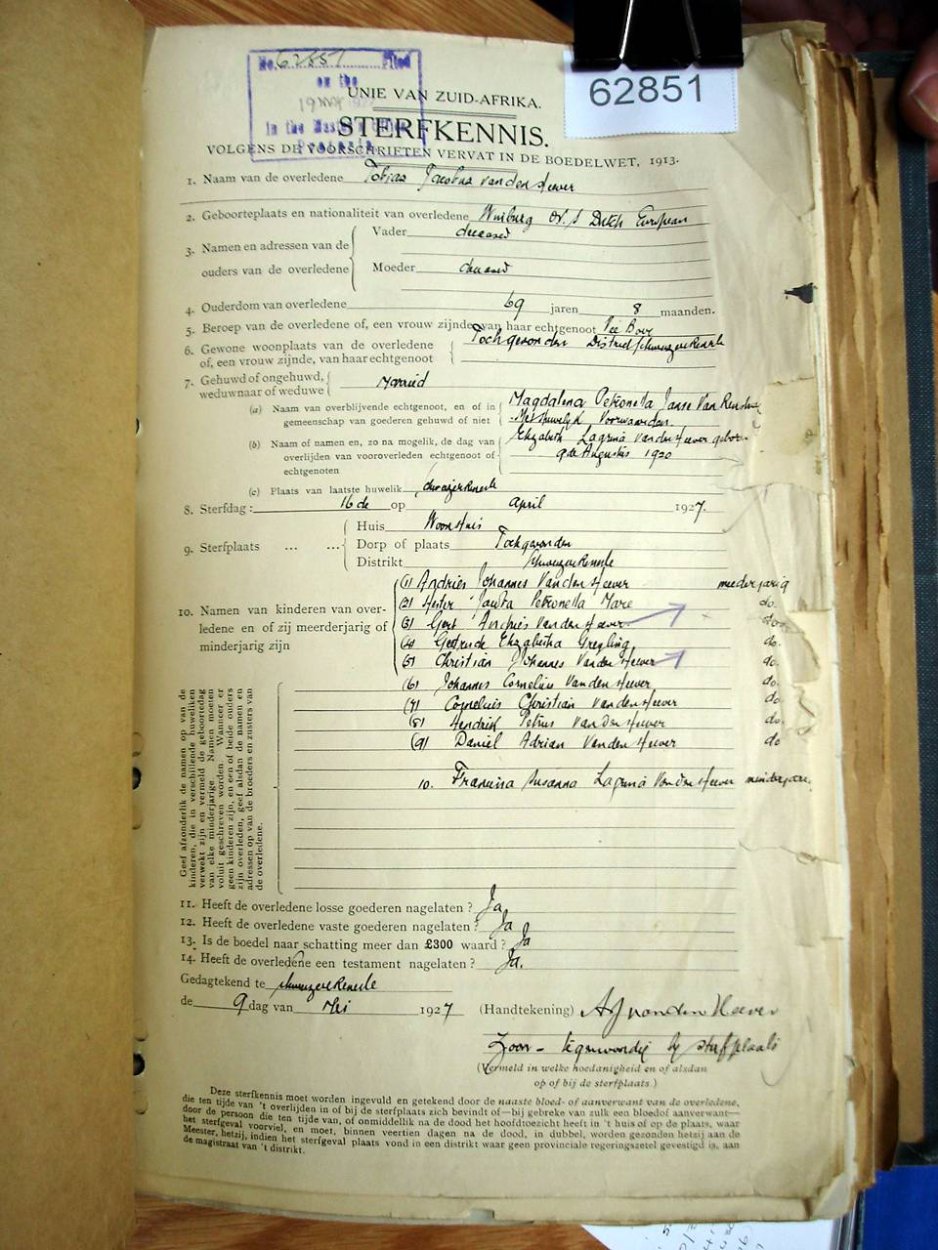 No. 62851 Filed
on the
19 MAY
In the Master's Office
Pretoria
62851
UNIE VAN ZUID-AFRIKA.
STERFKENNIS.
VOLGENS DE VOORSCHRIFTEN VERVAT IN DE BOEDELWET, 1913.
1. Naam van de overledene Tobias Jacobus van den Heever
2. Geboorteplaats en nationaliteit van overledene Winburg O.V.S Dutch European
3. Namen en adressen van de ouders van de overledene
Vader deceased
Moeder deceased
4. Ouderdom van overledene 69 jaren 8 maanden.
5. Beroep van de overledene of, een vrouw zijnde, van haar echtgenoot Vee Boer
6. Gewone woonplaats van de overledene Tochgevonden District Schweizer Reneke
of, een vrouw zijnde, van haar echtgenoot
7. Gehuwd of ongehuwd, weduwnaar of weduwe Married
(a) Naam van overblijvende echtgenoot, en of in Magdalena Petronella Janse Van Rensburg
gemeenschap van goederen gehuwd of niet Met Huwelyk Voorwaarden
(b) Naam of namen en, zo na mogelik, de dag van Elizabeth Lagrina van den Heever gebore
overlijden van vooroverleden echtgenoot of 9de Augustus 1920
echtgenoten
(c) Plaats van laatste huwelik Schweizer Reneke
8. Sterfdag: 16de op April 1927.
9. Sterfplaats ... ...
Huis Woonhuis
Dorp of plaats Tochgevonden
Distrikt Schweizer Reneke
10. Namen van kinderen van overledene en of zij meerderjarig of minderjarig zijn
(1) Andries Johannes Van den Heever meederjarig
(2) Hester Jacoba Petronella Mare do.
(3) Gert Andries Van den Heever do.
(4) Gedrude Elizabetha Greyling do.
(5) Christian Johannes Van den Heever do.
(6) Johannes Cornelius Van den Heever do.
(7) Cornelius Christian van den Heever do.
(8) Hendrik Petrus Van Den Heever do.
(9) Daniel Adrian Van den Heever do
10. Francina Susanna Lagrina Van den Heever minderjare.
Geef afzonderlik de namen op van de
kinderen, die in verschillende huweliken
verwekt zijn en vermeld de geboortedag
van elke minderjarige. Namen moeten
voluit geschreven worden. Wanneer er
geen kinderen zijn, en een of beide ouders
zijn overleden, geef alsdan de namen en
adressen op van de broeders en zusters van
de overledene.
11. Heeft de overledene losse goederen nagelaten? Ja
12. Heeft de overledene vaste goederen nagelaten? Ja
13. Is de boedel naar schatting meer dan £300 waard? Ja
14. Heeft de overledene een testament nagelaten? Ja.
Gedagtekend te Schweizer Reneke
de 9 dag van Mei 1927 (Handtekening) A J van den Heever
Zoon - tegenwoordig by sterfplaats
(Vermeld in welke hoedanigheid en of alsdan
op of bij de sterfplaats.)
Deze sterfkennis moet worden ingevuld en getekend door de naaste bloed- of aanverwant van de overledene,
die ten tijde van 't overlijden in of bij de sterfplaats zich bevindt of—bij gebreke van zulk een bloedof aanverwant—
door de persoon die ten tijde van, of onmiddelik na de dood het hoofdtoezicht heeft in 't huis of op de plaats, waar
het sterfgeval voorviel, en moet, binnen veertien dagen na de dood, in dubbel, worden gezonden hetzij aan de
Meester, hetzij, indien het sterfgeval plaats vond in een distrikt waar geen provinciale regeringszetel gevestigd is, aan
de magistraat van 't distrikt.